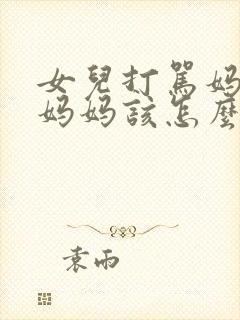 女兒打罵媽
媽媽該怎麼
袁雨